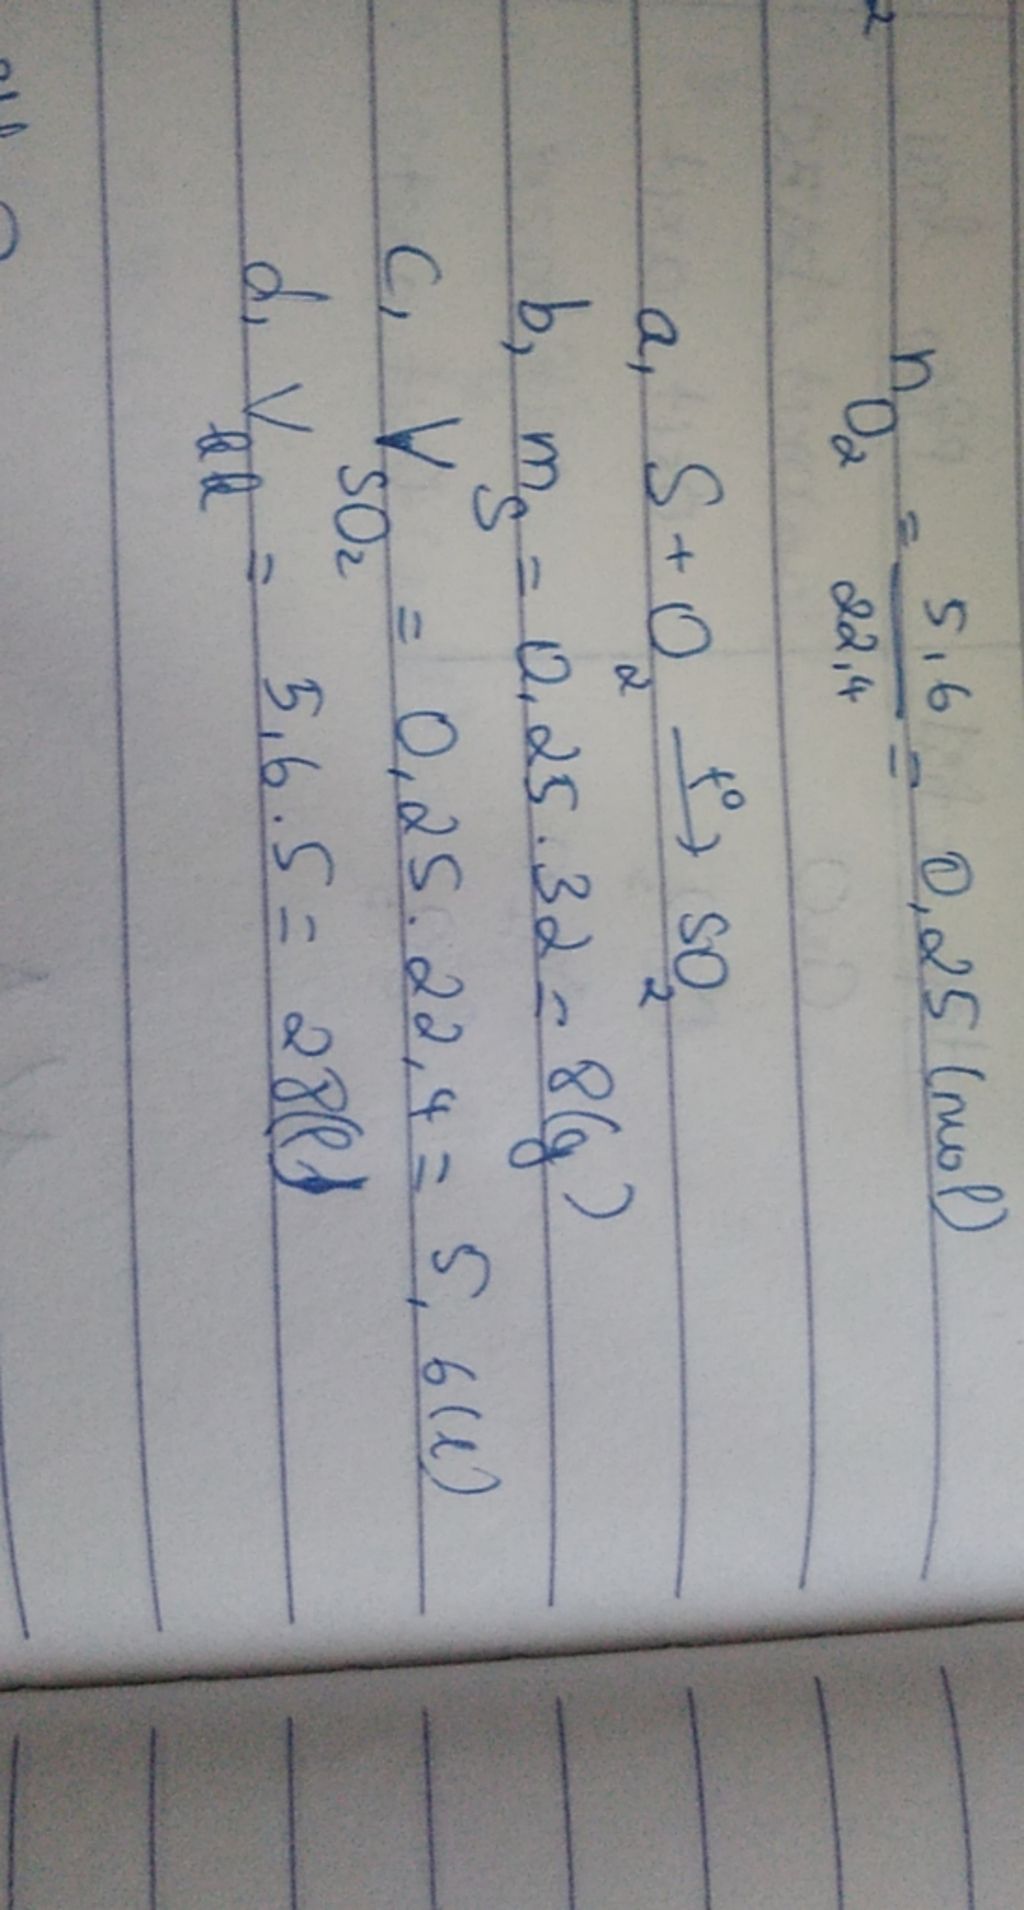 n O₂ = 5,6 / 22,4 = 0,25 (mol)
a, S + O₂ —t°→ SO₂
b, m S = 0,25 . 32 = 8(g)
c, V SO₂ = 0,25 . 22,4 = 5,6(l)
d, V = 5,6 . 5 = 28(l)